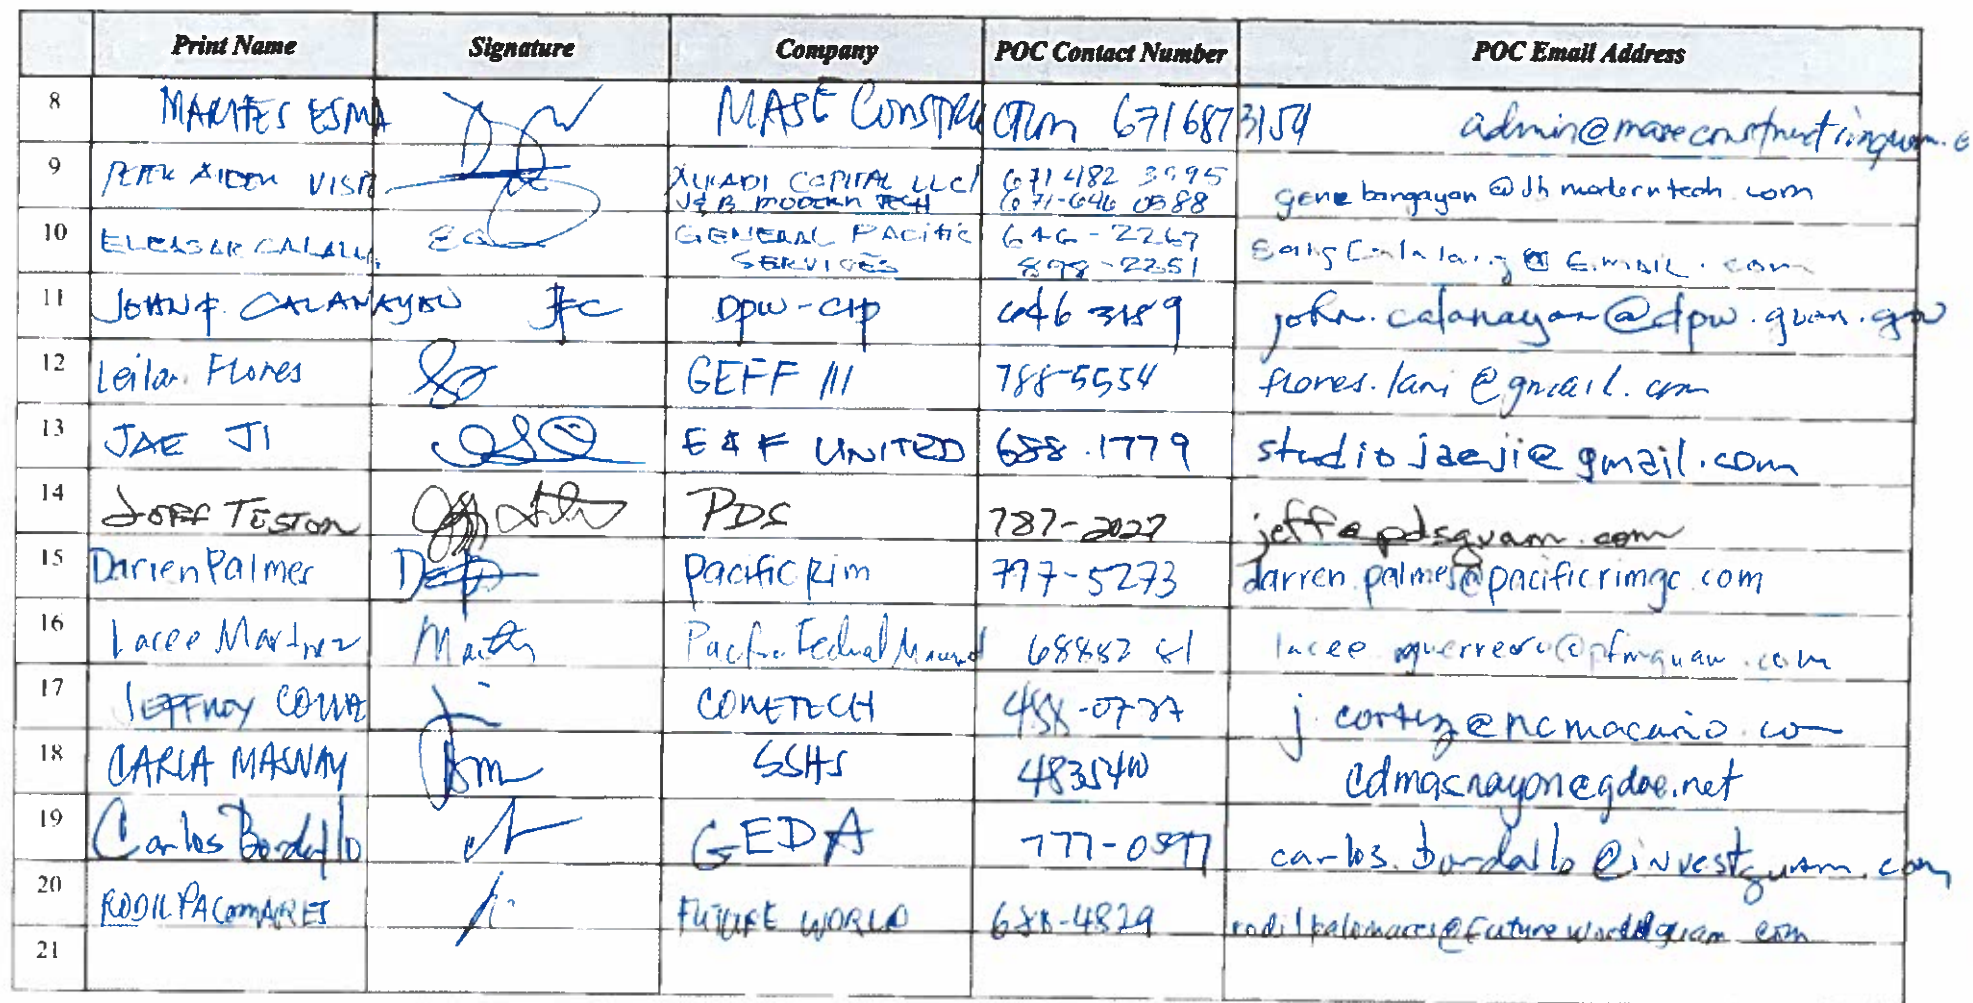 Print Name Signature Company POC Contact Number POC Email Address
8 MARITES ESMA MASE CONSTRUCTION 6716873154 admin@maseconstructionguam.c
9 PETER AIDEN VISTA XURADI CAPITAL LLC/ 671 482 3995 genebangayon@jbmoderntech.com
J&B MODERN TECH 671-646 0588
10 ELEASAR CALALANG GENERAL PACIFIC 646-2267
SERVICES 898-2251
11 JOHN F. CALANAYAN JFC DPW-CIP 646 3189 john.calanayan@dpw.guam.gov
12 Leila Flores GEFF III 788-5554 flores.lani@gmail.com
13 JAE JI E & F UNITED 688.1779 studiojaeji@gmail.com
14 JOFF TESTON PDS 787-2027 jeff@pdsguam.com
15 Darren Palmes Pacific Rim 797-5273 darren.palmes@pacificrimgc.com
16 Lacee Martinez Pacific Federal 68882 81 lacee.guerrero@pfmguam.com
17 JEFFREY CORTEZ CORETECH j.cortez@ncmacario.com
18 CARLA MASNAY SSHS cdmasnayon@gdoe.net
19 Carlos Bordallo GEDA carlos.bordallo@investguam.com
20 RODIL PALOMARES FUTURE WORLD 688-4829 rodilpalomares@futureworldguam.com
21